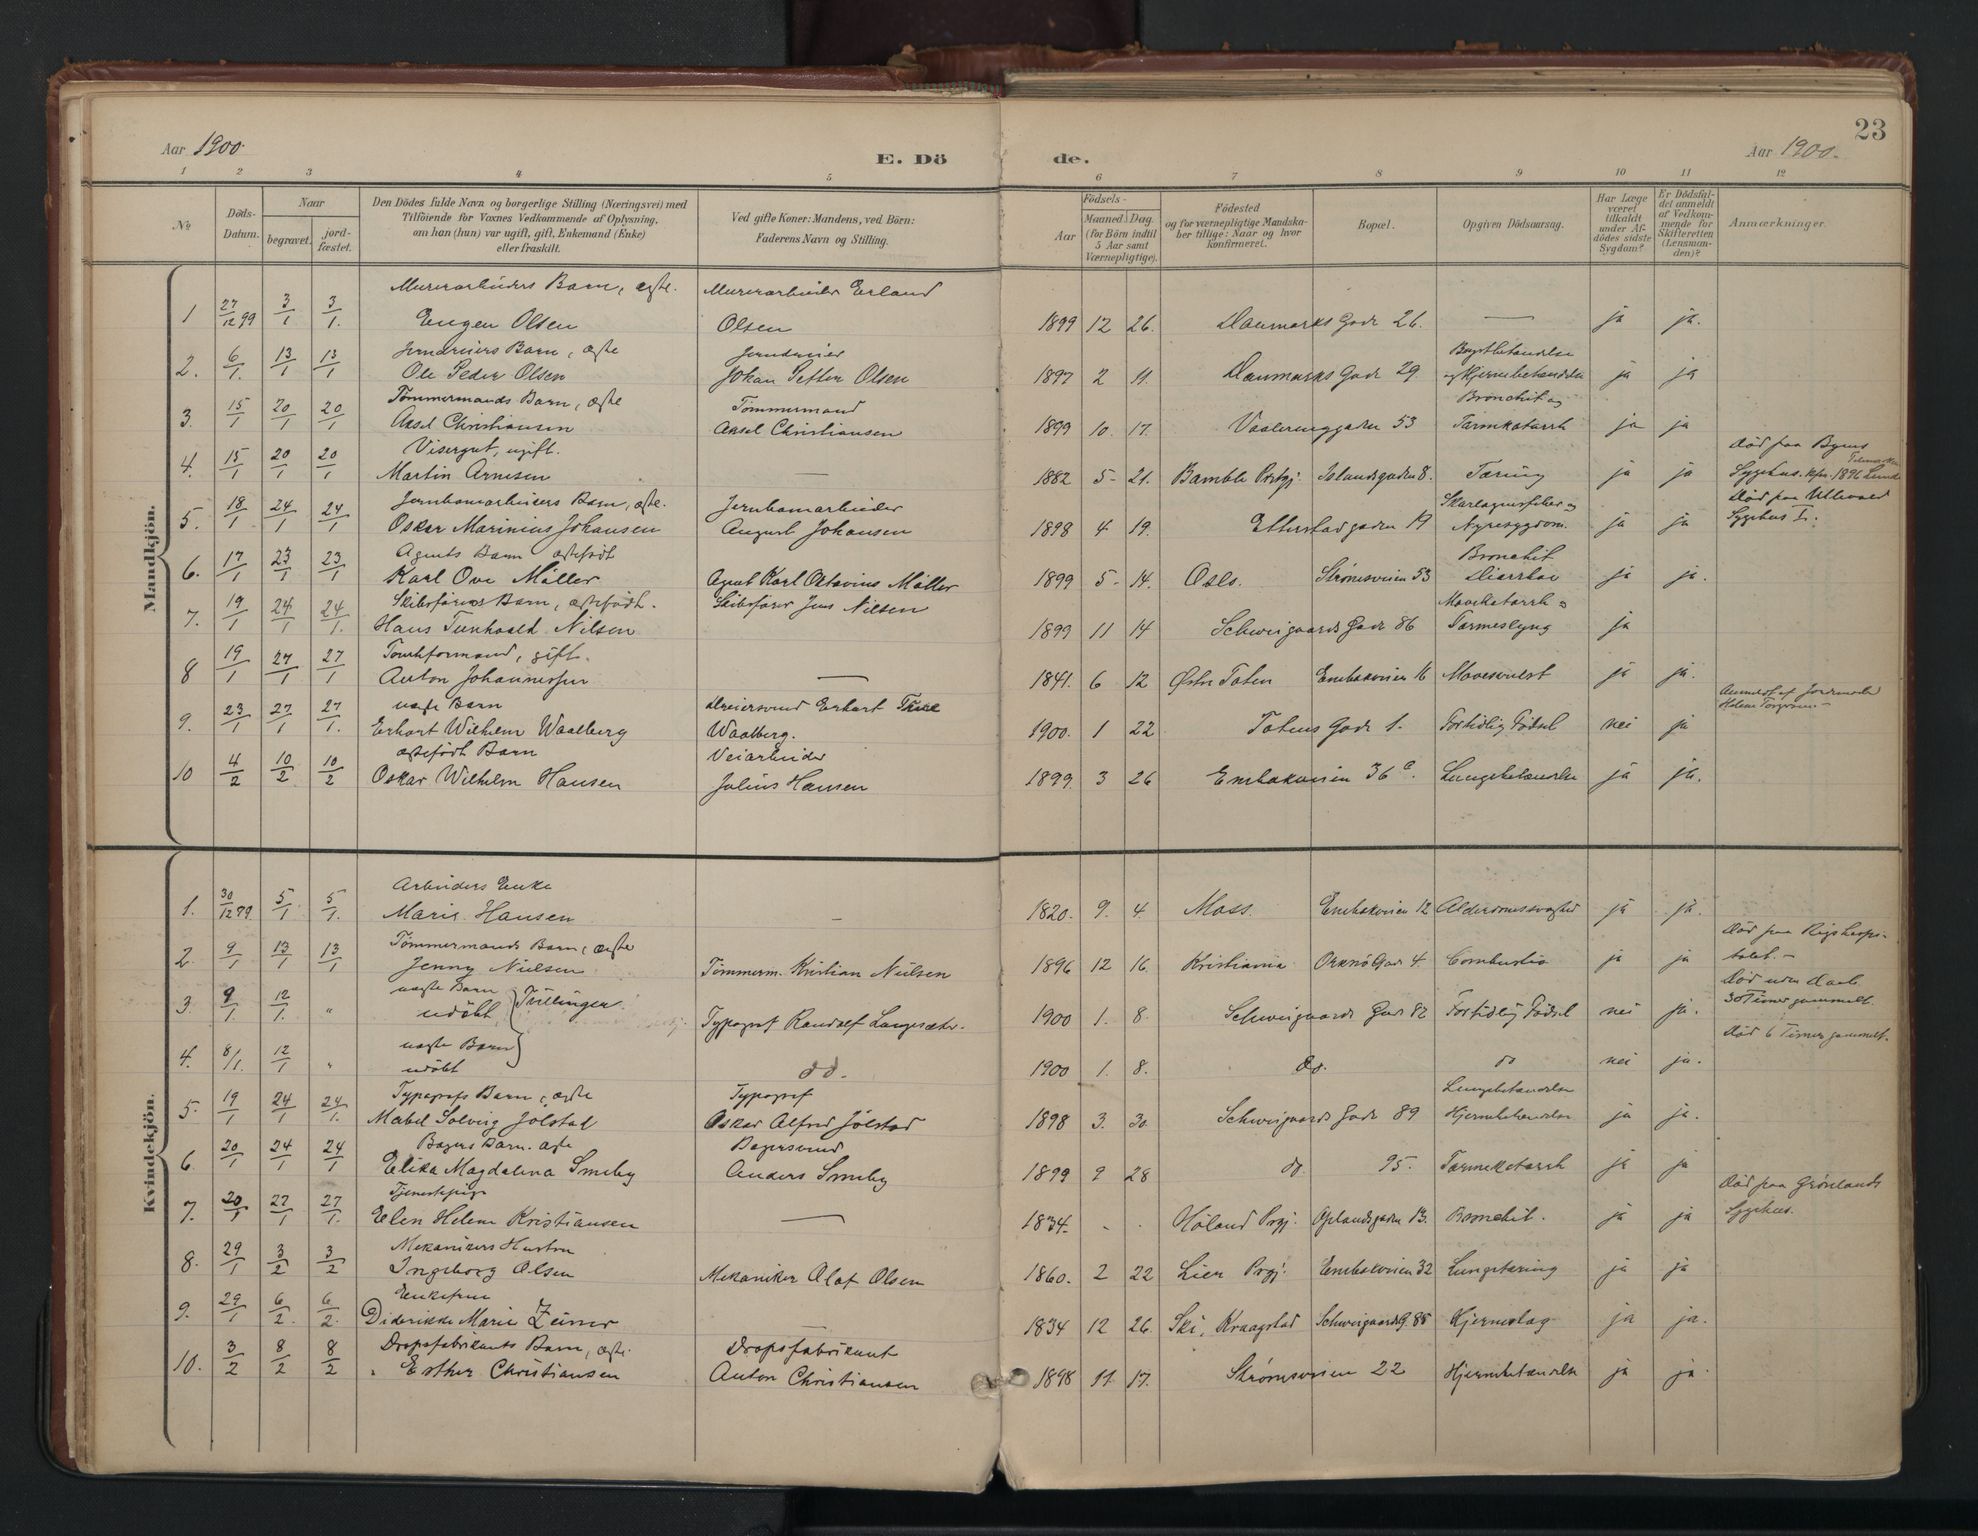 23
Aar 1900. E. Dö de. Aar 1900.
1 2 3 4 5 6 7 8 9 10 11 12
№ Döds-Datum. Naar begravet. jord-fæstet. Den Dödes fulde Navn og borgerlige Stilling (Næringsvei) med Tilföiende for Voxnes Vedkommende af Oplysning, om han (hun) var ugift, gift, Enkemand (Enke) eller fraskilt. Ved gifte Koner: Mandens, ved Börn: Faderens Navn og Stilling. Födsels- Aar Maaned. Dag. (for Börn indtil 5 Aar samt Værnepligtige). Födested og for værnepligtige Mandskaber tillige: Naar og hvor konfirmeret. Bopæl. Opgiven Dödsaarsag. Har Læge været tilkaldt under Afdödes sidste Sygdom? Er Dödsfaldet anmeldt af Vedkommende for Skifteretten (Lensmanden)? Anmærkninger.
Mandkjön.
Murerarbeiders Barn, ægte. Murerarbeider Erland
1 27/12 99 3/1 3/1. Eugen Olsen Olsen 1899 12 26. Danmarks Gade 26. — ja ja.
Jerndreiers Barn, ægte Jerndreier Brystbetændelse
2. 6/1. 13/1 13/1 Ole Peder Olsen Johan Petter Olsen 1897 2 11. Danmarks Gade 29. og Hjernebetændelse ja ja
Tömmermands Barn, ægte Tömmermand Bronchit og
3. 15/1 20/1 20/1 Aksel Christiansen Aksel Christiansen 1899 10. 17. Vaalerenggaden 53 Tarmkatarrh ja ja
Visergut, ugift. Död paa Byens
4. 15/1 20/1 20/1 Martin Arnesen — 1882 5 21. Bamble Prstgj. Islandsgaden 8. Tæring ja ja Sygehus. 1896 Lunde Telemarken
Jernbanearbeiders Barn, ægte. Jernbanearbeider Skarlagensfeber og Död paa Ullevaal
5. 18/1 24/1 24/1 Oskar Marinius Johansen August Johansen 1898 4 19. Etterstadgaden 19 Nyresygdom. ja ja Sygehus I.
Agents Barn ægtefödt Bronchit
6. 17/1 23/1 23/1 Karl Ove Möller Agent Karl Oktavius Möller 1899 5 14. Oslo. Strömsveien 53 Diarrhoe ja ja.
Skibsförers Barn, ægtefödt. Skibsförer Jens Nilsen Mavekatarrh og
7. 19/1 24/1 24/1. Hans Nilsen 1899 11 14 Schweigaards Gade 86 Tarmeslyng ja
Tomtformand, gift.
8 19/1 27/1 27/1 Anton Johannessen — 1841. 6 12 Östre Toten Enebakveien 16 Mavesvulst ja ja.
uægte Barn Dreiersvend Erhart Anmeldt af Jormoder
9. 23/1 27/1 27/1. Erhart Wilhelm Waalberg Waalberg. 1900. 1 22 Totens Gade 1. Fortidlig Födsel nei ja Helene
ægtefödt Barn Veiarbeider
10 4/2 10/2 10/2 Oskar Wilhelm Hansen Julius Hansen 1899 3 26 Enebakveien 36 Lungebetændelse ja ja.
Kvindekjön.
Arbeiders Enke
1. 30/12 99 5/1 5/1. Marie Hansen – 1820. 9. 4. Moss. Enebakveien 12 Alderdomssvaghed ja ja.
Tömmermands Barn, ægte Död paa Rigshospi-
2. 9/1 13/1 13/1 Jenny Nielsen Tömmerm. Kristian Nielsen 1896 12 16. Kristiania Orknö Gade 4. Combustio ja ja talet. –
uægte Barn Död uden Daab.
3. 9/1. 12/1. " udöbt Tvillinger. Typograf Randolf Langesæter. 1900 1. 8. Schweigaards Gade 82 Fortidlig Födsel nei ja. 30 Timer gammelt.
uægte Barn Död 6 Timer gammelt.
4. 8/1. 12/1 " udöbt do. 1900 1. 8. do. do nei ja.
Typografs Barn, ægte Typograf Lungebetændelse
5. 19/1 24/1 24/1. Mabel Solveig Jölstad Oskar Alfred Jölstad 1898 3. 30. Schweigaards Gade 89 Hjernebetændelse ja ja.
Bagers Barn. ægte Bagersvend
6. 20/1 24/1 24/1 Elika Magdalena Smeby Anders Smeby 1899 9 28 do. 95. Tarmekatarrh ja ja
Tjenestepige Död paa Grönlands
7. 20/1 27/1 27/1. Elen Helene Kristiansen — 1834. - - Höland Prgj. Oplandsgaden 13. Bronchit. ja ja Sygehus.
Mekanikers Hustru
8. 29/1 3/2 3/2 Ingeborg Olsen Mekaniker Olaf Olsen 1860. 2 22 Lier Prgj. Enebakveien 32 Lungetæring ja ja
Enkefrue
9. 29/1 6/2. 6/2. Diderikke Marie Zeiner – 1834 12 26. Ski, Kraagstad Schweigaards G. 88 Hjerneslag ja ja.
Dropsfabrikants Barn, ægte. Dropsfabrikant
10. 3/2 8/2 8/2 Esther Christiansen Anton Christiansen 1898 11. 17. Strömsveien 22 Hjernebetændelse ja ja.